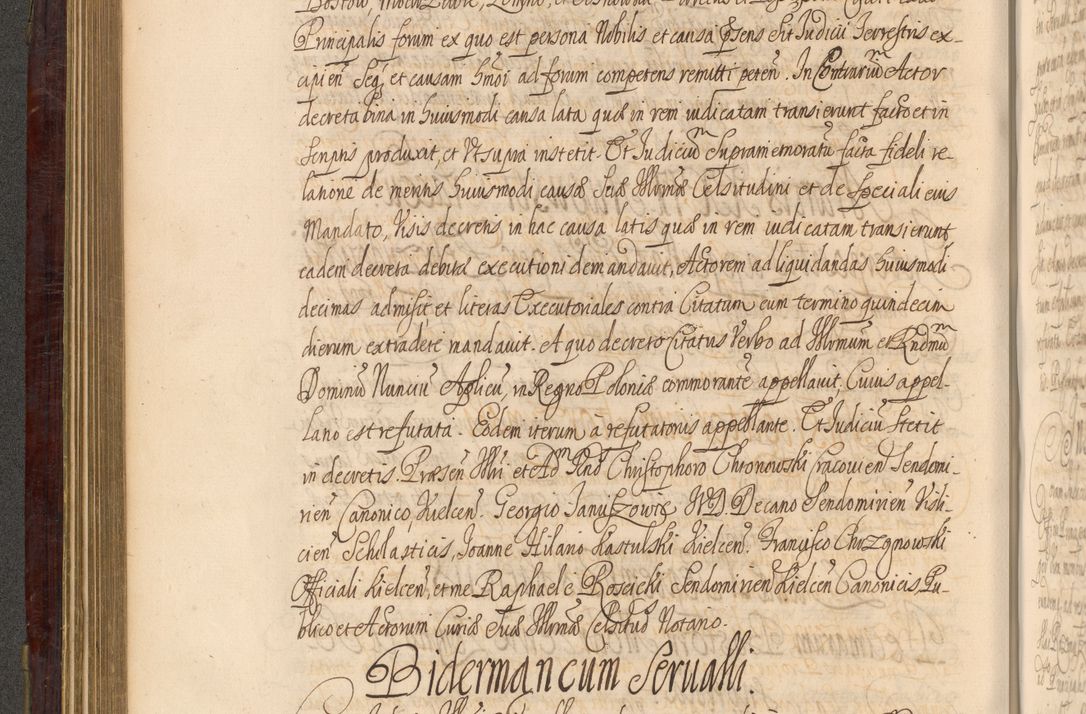 Principalis forum ex quo est persona Nobilis et causa p̃sens sit Judicii Terrestris ex-
cipien̄ Seq̃ et causam h̃moi ad forum competens remitti peten̄. In Contrariũ Actor
decreta bina in huiusmodi causa lata quæ in rem iudicatam transierunt facto et in
scriptis produxit, et Vt supra institit. Et Judiciũ supramemoratũ facta fideli re-
latione de meritis huiusmodi causæ Suæ Illrmæ Celsitudini et de speciali eius
Mandato, Visis decretis in hac causa latis quæ in rem iudicatam transierunt
eadem decreta debitæ executioni demandavit, Actorem ad liquidandas huiusmodi
decimas admisit et literas Executoriales contra Citatum cum termino quindecim
dierum extradere mandavit. A quo decreto Citatus Verbo ad Illrmum et Rndmũ
Dominũ Nunciũ Aplicũ, in Regno Poloniæ commorantẽ appellavit, Cuius appel-
latio est refutata. Eodem iterum à refutatoriis appellante. Et Judiciũ stetit
in decretis. Præsen̄ Illri et Adm Rnd Christophoro Chronowski Cracovien̄ Sendomi-
rien̄ Canonico, Kielcen̄. Georgio Januszowic JVD. Decano Sendomirien̄ Visli-
cien̄ Scholasticis, Joanne Hilario Kastulski Kielcen̄. Francisco Chrzanowski
Officiali Kielcen̄, et me Raphaele Roscicki Sendomirien̄ Kielcen̄ Canonicis Pu-
blico et Actorum Curiæ Suæ Illrmæ Celsitud̃ Notario.
Biderman cum Servalli.